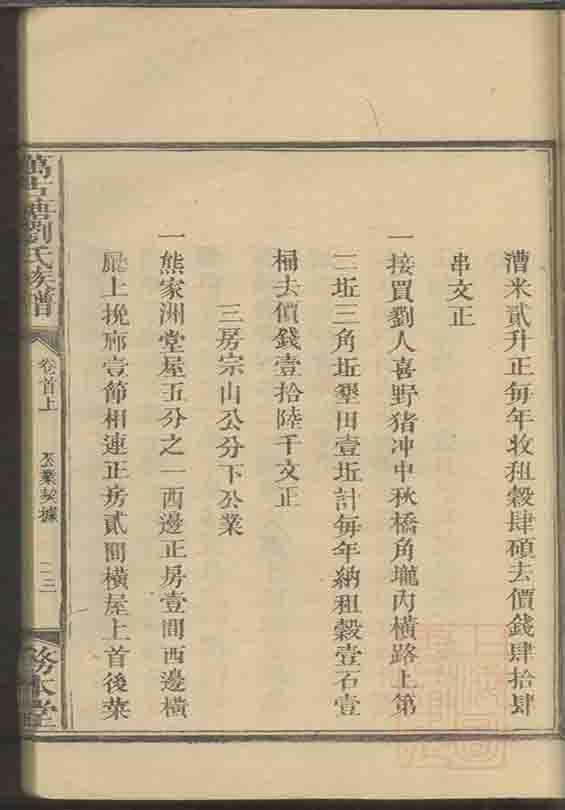 漕米貳升正每年收租穀肆碩去價錢肆拾肆
串文正
一接買劉人喜野猪冲中秋橋角壠內橫路上第
二坵三角坵墾田壹坵計每年納租穀壹石壹
桶去價錢壹拾陸千文正
三房宗山公分下公業
一熊家洲堂屋五分之一西邊正房壹間西邊橫
屋上挽廊壹節相連正房貳間橫屋上首後菜
萬古塘劉氏族譜
卷首上
公業契據
二三
務本堂